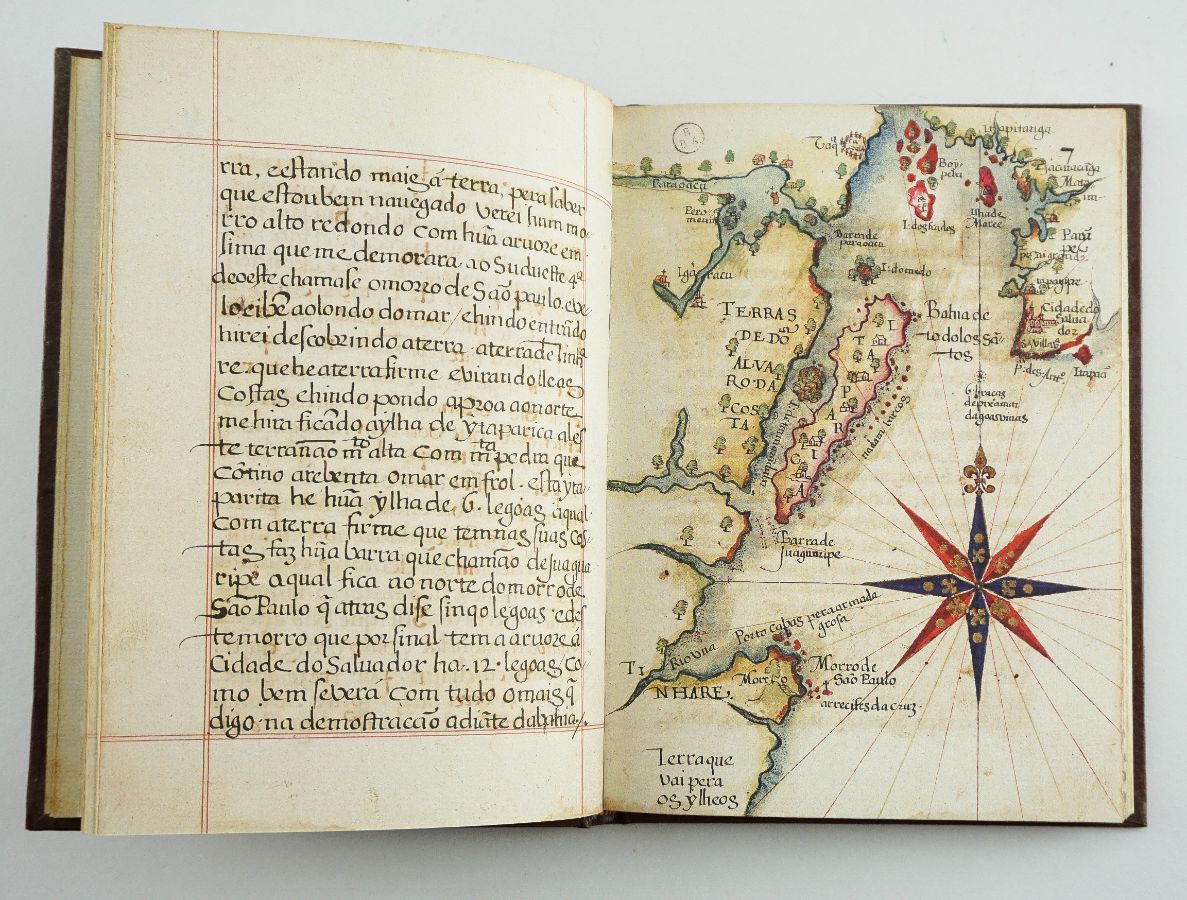 rra, e estando mais á terra, pera saber
que estou bem nauegado verei hum mo-
rro alto redondo com huã aruore em
sima que me demorara ao Sudueste 4ª
deoeste chamase o morro de São paulo, e ve
aolondo do mar, e hindo entrãdo
hirei descobrindo a terra. a terra de linha
re que he a terra firme e virando lle as
Costas e hindo pondo aproa ao norte
me hira ficãdo a ylha de ytaparica a les
te terra não m.to alta Com m.ta pedra que
Cõtino arebenta o mar em frol. esta yta-
parita he huã ylha de 6. legoas a qual
Com a terra firme que tem nas suas Cos-
tas faz huã barra que chamão de juagua
ripe a qual fica ao norte do morro de
São Paulo q̃ atras dise sinqo legoas. e des
te morro que por sinal tem a aruore á
Cidade do Saluador ha. 12. legoas Co-
mo bem se verá com tudo o mais q̃
digo. na demostracão adiãte da bahia,
7
Tapitanga
Taq
Paraoacu
Boy-
peba
I. dos frades
Ilha de
Mare
Mata
im
Pero
merim
Barra de
paraoacu
Igaracu
I. do medo
Parã
pe
perui grande
Tapagipe
Cidade do
Salua
dor
S. Villas
P. de S. Antº
Itapuã
TERRAS
DE DÕ
ALVA
RO DA
COS
TA
ITAPARICA
Bahia de
todolos Sã-
tos
nadam barcos
6 braças
de preamar
dagoas viuas
Barra de
Juaguaripe
Porto Capas pera armada
grosa
Rio Una
TI
NHARE,
Morro
Morro de
São Paulo
arrecifes da Cruz.
Terra que
vai pera
os ylheos